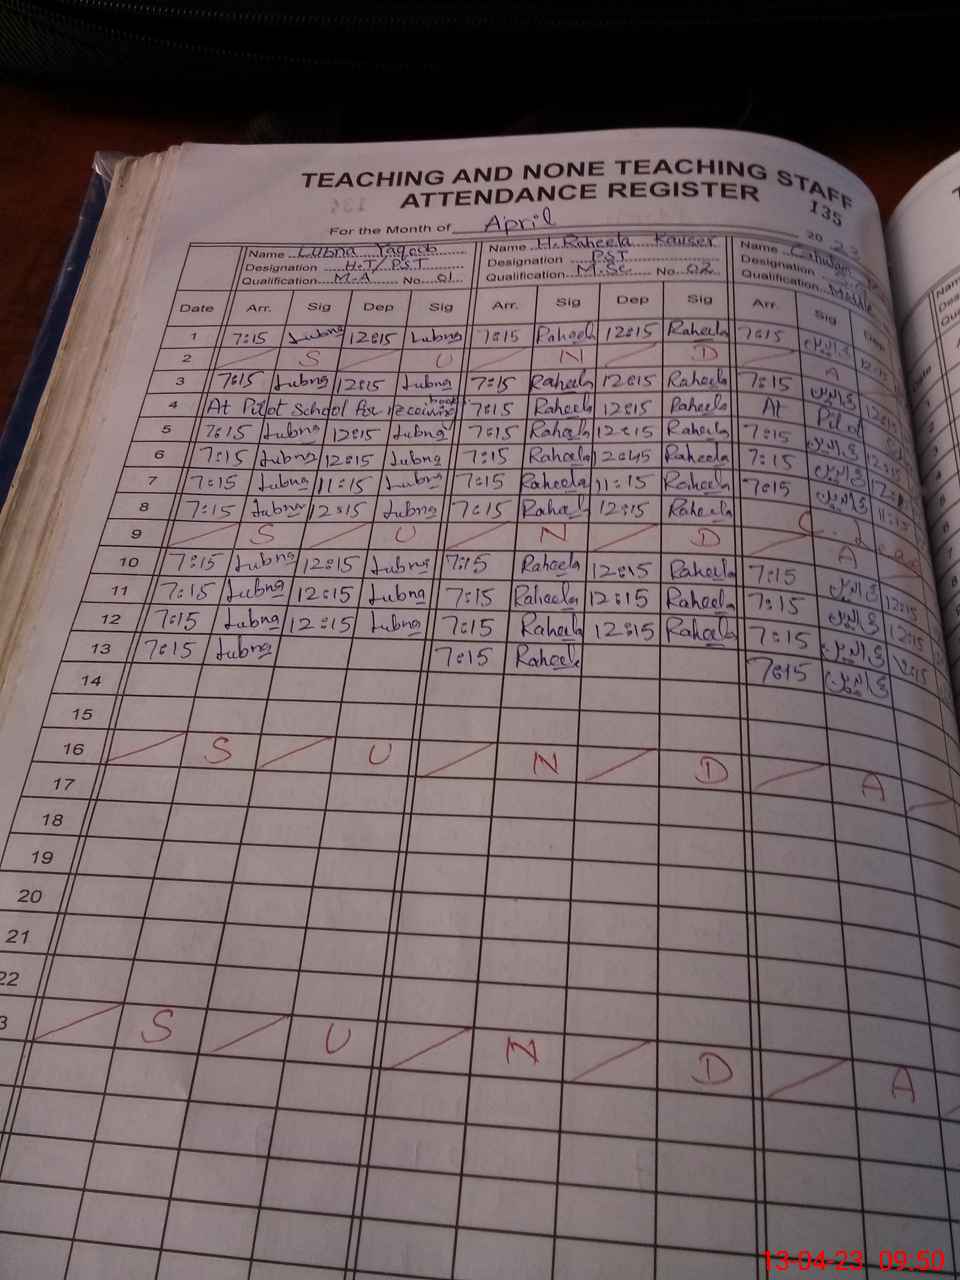 TEACHING AND NONE TEACHING STAFF
ATTENDANCE REGISTER 135
For the Month of April 20 23
Name Lubna Yaqoob Name H. Raheela Kauser Name
Designation H.T/PST Designation PST Designation
Qualification M.A No 01 Qualification M.Sc. No 02 Qualification Middle
Date Arr. Sig Dep Sig Arr. Sig Dep Sig Arr. Sig
1 7:15 Lubna 12:15 Lubna 7:15 Raheela 12:15 Raheela 7:15
2 S U N D A
3 7:15 Lubna 12:15 Lubna 7:15 Raheela 12:15 Raheela 7:15
4 At Pilot School for receiving books 7:15 Raheela 12:15 Raheela At Pilot
5 7:15 Lubna 12:15 Lubna 7:15 Raheela 12:15 Raheela 7:15
6 7:15 Lubna 12:15 Lubna 7:15 Raheela 12:45 Raheela 7:15
7 7:15 Lubna 11:15 Lubna 7:15 Raheela 11:15 Raheela 7:15
8 7:15 Lubna 12:15 Lubna 7:15 Raheela 12:15 Raheela
9 S U N D A
10 7:15 Lubna 12:15 Lubna 7:15 Raheela 12:15 Raheela 7:15 12:15
11 7:15 Lubna 12:15 Lubna 7:15 Raheela 12:15 Raheela 7:15 12:15
12 7:15 Lubna 12:15 Lubna 7:15 Raheela 12:15 Raheela 7:15 12:15
13 7:15 Lubna 7:15 Raheela 7:15
14
15
16 S U N D A
17
18
19
20
21
22
3 S U N D A
13-04-23 09:50